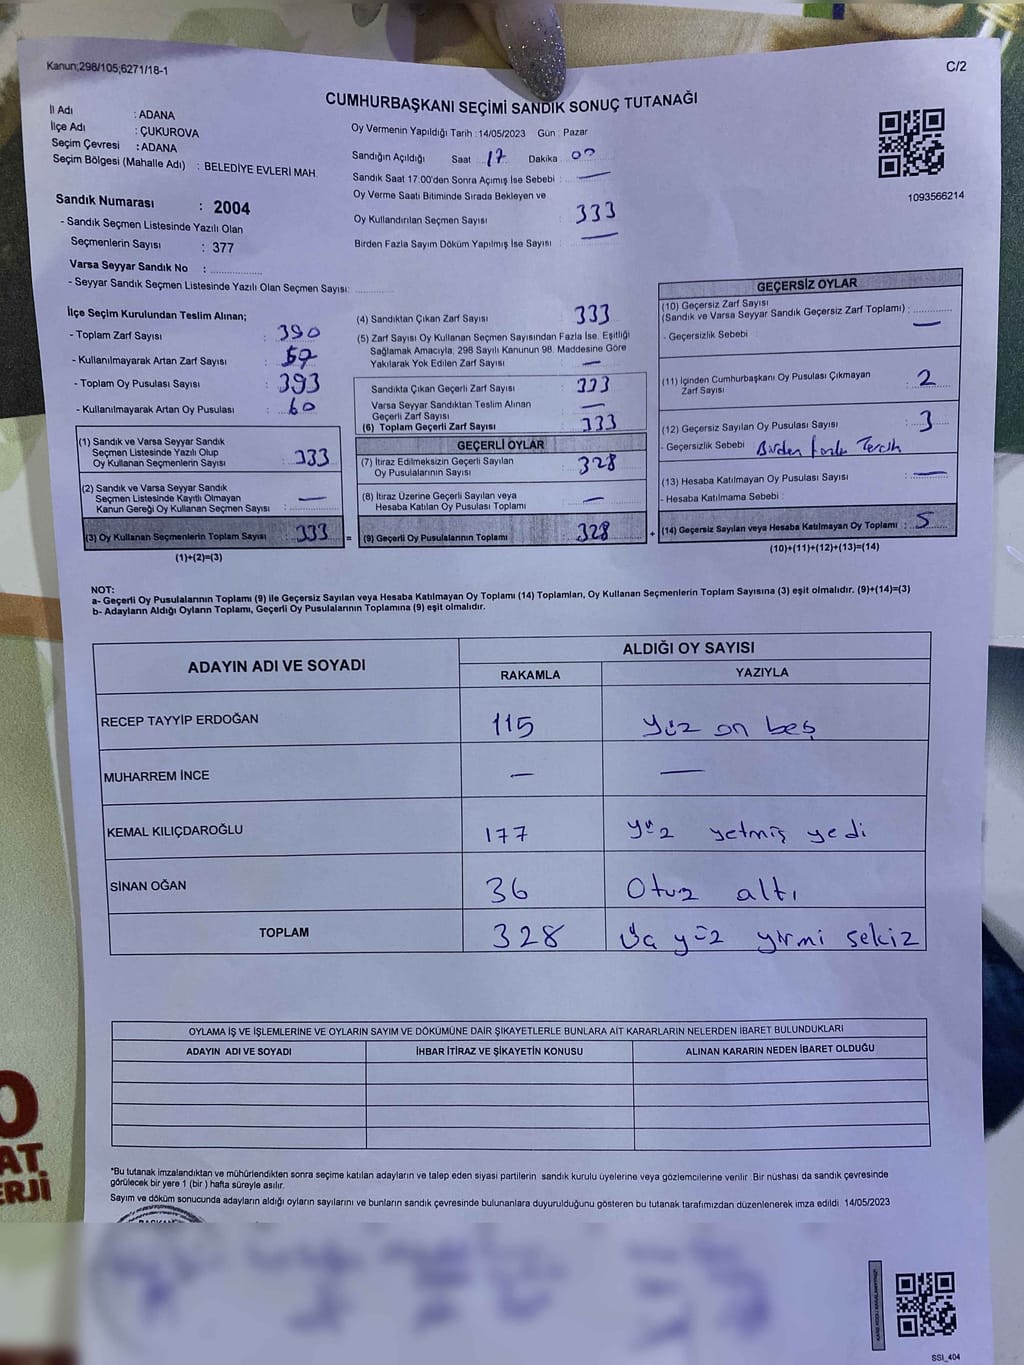 Kanun;298/105;6271/18-1
C/2
CUMHURBAŞKANI SEÇİMİ SANDIK SONUÇ TUTANAĞI
İl Adı : ADANA
İlçe Adı : ÇUKUROVA
Seçim Çevresi : ADANA
Seçim Bölgesi (Mahalle Adı) : BELEDİYE EVLERİ MAH.
Sandık Numarası : 2004
- Sandık Seçmen Listesinde Yazılı Olan
Seçmenlerin Sayısı : 377
Varsa Seyyar Sandık No :
- Seyyar Sandık Seçmen Listesinde Yazılı Olan Seçmen Sayısı:
Oy Vermenin Yapıldığı Tarih : 14/05/2023 Gün : Pazar
Sandığın Açıldığı Saat 17 Dakika 00
Sandık Saat 17:00'den Sonra Açımış İse Sebebi : —
Oy Verme Saati Bitiminde Sırada Bekleyen ve
Oy Kullandırılan Seçmen Sayısı : 333
Birden Fazla Sayım Döküm Yapılmış İse Sayısı : —
1093566214
İlçe Seçim Kurulundan Teslim Alınan;
- Toplam Zarf Sayısı : 390
- Kullanılmayarak Artan Zarf Sayısı : 57
- Toplam Oy Pusulası Sayısı : 393
- Kullanılmayarak Artan Oy Pusulası : 60
(1) Sandık ve Varsa Seyyar Sandık
Seçmen Listesinde Yazılı Olup
Oy Kullanan Seçmenlerin Sayısı : 333
(2) Sandık ve Varsa Seyyar Sandık
Seçmen Listesinde Kayıtlı Olmayan
Kanun Gereği Oy Kullanan Seçmen Sayısı : —
(3) Oy Kullanan Seçmenlerin Toplam Sayısı : 333
(1)+(2)=(3)
(4) Sandıktan Çıkan Zarf Sayısı : 333
(5) Zarf Sayısı Oy Kullanan Seçmen Sayısından Fazla İse, Eşitliği
Sağlamak Amacıyla, 298 Sayılı Kanunun 98. Maddesine Göre
Yakılarak Yok Edilen Zarf Sayısı : —
Sandıkta Çıkan Geçerli Zarf Sayısı : 333
Varsa Seyyar Sandıktan Teslim Alınan
Geçerli Zarf Sayısı : —
(6) Toplam Geçerli Zarf Sayısı : 333
GEÇERLİ OYLAR
(7) İtiraz Edilmeksizin Geçerli Sayılan
Oy Pusulalarının Sayısı : 328
(8) İtiraz Üzerine Geçerli Sayılan veya
Hesaba Katılan Oy Pusulası Toplamı : —
= (9) Geçerli Oy Pusulalarının Toplamı : 328
GEÇERSİZ OYLAR
(10) Geçersiz Zarf Sayısı
(Sandık ve Varsa Seyyar Sandık Geçersiz Zarf Toplamı) : —
- Geçersizlik Sebebi :
(11) İçinden Cumhurbaşkanı Oy Pusulası Çıkmayan
Zarf Sayısı : 2
(12) Geçersiz Sayılan Oy Pusulası Sayısı : 3
- Geçersizlik Sebebi : Birden fazla Tercih
(13) Hesaba Katılmayan Oy Pusulası Sayısı : —
- Hesaba Katılmama Sebebi :
+ (14) Geçersiz Sayılan veya Hesaba Katılmayan Oy Toplamı : 5
(10)+(11)+(12)+(13)=(14)
NOT:
a- Geçerli Oy Pusulalarının Toplamı (9) ile Geçersiz Sayılan veya Hesaba Katılmayan Oy Toplamı (14) Toplamları, Oy Kullanan Seçmenlerin Toplam Sayısına (3) eşit olmalıdır. (9)+(14)=(3)
b- Adayların Aldığı Oyların Toplamı, Geçerli Oy Pusulalarının Toplamına (9) eşit olmalıdır.
ADAYIN ADI VE SOYADI ALDIĞI OY SAYISI
RAKAMLA YAZIYLA
RECEP TAYYİP ERDOĞAN 115 yüz on beş
MUHARREM İNCE — —
KEMAL KILIÇDAROĞLU 177 yüz yetmiş yedi
SİNAN OĞAN 36 Otuz altı
TOPLAM 328 Üç yüz yirmi sekiz
OYLAMA İŞ VE İŞLEMLERİNE VE OYLARIN SAYIM VE DÖKÜMÜNE DAİR ŞİKAYETLERLE BUNLARA AİT KARARLARIN NELERDEN İBARET BULUNDUKLARI
ADAYIN ADI VE SOYADI İHBAR İTİRAZ VE ŞİKAYETİN KONUSU ALINAN KARARIN NEDEN İBARET OLDUĞU
*Bu tutanak imzalandıktan ve mühürlendikten sonra seçime katılan adayların ve talep eden siyasi partilerin sandık kurulu üyelerine veya gözlemcilerine verilir. Bir nüshası da sandık çevresinde
görülecek bir yere 1 (bir) hafta süreyle asılır.
Sayım ve döküm sonucunda adayların aldığı oyların sayılarını ve bunların sandık çevresinde bulunanlara duyurulduğunu gösteren bu tutanak tarafımızdan düzenlenerek imza edildi. 14/05/2023
SSI_404